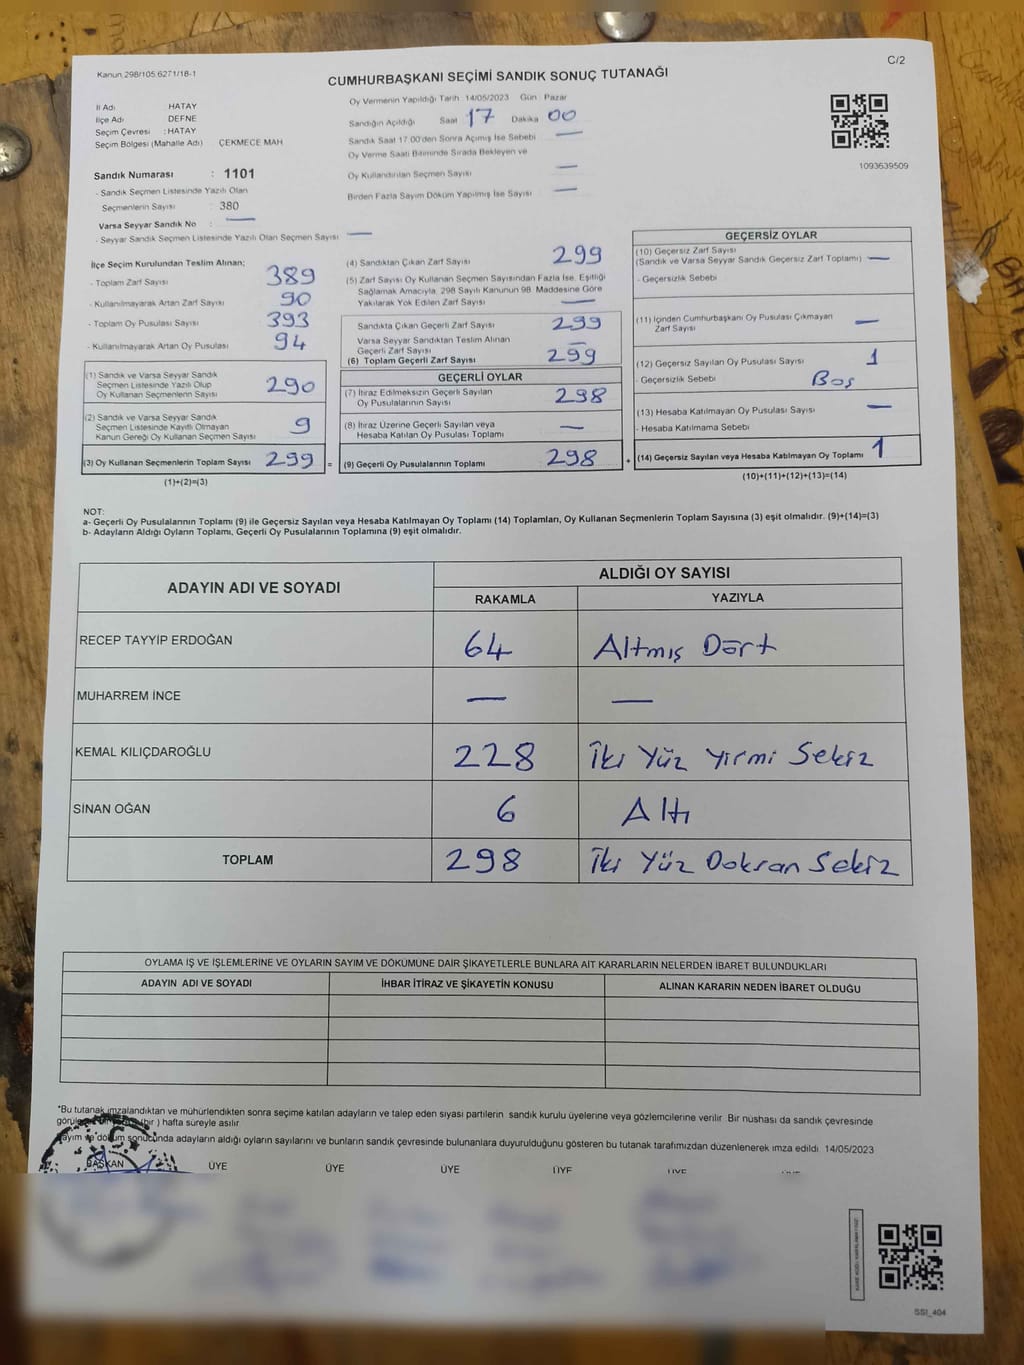 Kanun 298/105 6271/18-1
C/2
CUMHURBAŞKANI SEÇİMİ SANDIK SONUÇ TUTANAĞI
İl Adı HATAY
İlçe Adı DEFNE
Seçim Çevresi : HATAY
Seçim Bölgesi (Mahalle Adı) ÇEKMECE MAH
Sandık Numarası : 1101
- Sandık Seçmen Listesinde Yazılı Olan
Seçmenlerin Sayısı : 380
Varsa Seyyar Sandık No : —
- Seyyar Sandık Seçmen Listesinde Yazılı Olan Seçmen Sayısı —
Oy Vermenin Yapıldığı Tarih 14/05/2023 Gün Pazar
Sandığın Açıldığı Saat 17 Dakika 00
Sandık Saat 17 00'den Sonra Açımış İse Sebebi —
Oy Verme Saati Bitiminde Sırada Bekleyen ve
Oy Kullandırılan Seçmen Sayısı —
Birden Fazla Sayım Döküm Yapılmış İse Sayısı —
1093639509
İlçe Seçim Kurulundan Teslim Alınan;
- Toplam Zarf Sayısı 389
- Kullanılmayarak Artan Zarf Sayısı 90
- Toplam Oy Pusulası Sayısı 393
- Kullanılmayarak Artan Oy Pusulası 94
(1) Sandık ve Varsa Seyyar Sandık
Seçmen Listesinde Yazılı Olup
Oy Kullanan Seçmenlerin Sayısı 290
(2) Sandık ve Varsa Seyyar Sandık
Seçmen Listesinde Kayıtlı Olmayan
Kanun Gereği Oy Kullanan Seçmen Sayısı 9
(3) Oy Kullanan Seçmenlerin Toplam Sayısı 299 =
(1)+(2)=(3)
(4) Sandıktan Çıkan Zarf Sayısı 299
(5) Zarf Sayısı Oy Kullanan Seçmen Sayısından Fazla İse, Eşitliği
Sağlamak Amacıyla, 298 Sayılı Kanunun 98. Maddesine Göre
Yakılarak Yok Edilen Zarf Sayısı —
Sandıkta Çıkan Geçerli Zarf Sayısı 299
Varsa Seyyar Sandıktan Teslim Alınan
Geçerli Zarf Sayısı —
(6) Toplam Geçerli Zarf Sayısı 299
GEÇERLİ OYLAR
(7) İtiraz Edilmeksizin Geçerli Sayılan
Oy Pusulalarının Sayısı 298
(8) İtiraz Üzerine Geçerli Sayılan veya
Hesaba Katılan Oy Pusulası Toplamı —
(9) Geçerli Oy Pusulalarının Toplamı 298 +
GEÇERSİZ OYLAR
(10) Geçersiz Zarf Sayısı
(Sandık ve Varsa Seyyar Sandık Geçersiz Zarf Toplamı) —
- Geçersizlik Sebebi
(11) İçinden Cumhurbaşkanı Oy Pusulası Çıkmayan
Zarf Sayısı —
(12) Geçersiz Sayılan Oy Pusulası Sayısı 1
- Geçersizlik Sebebi Boş
(13) Hesaba Katılmayan Oy Pusulası Sayısı —
- Hesaba Katılmama Sebebi
(14) Geçersiz Sayılan veya Hesaba Katılmayan Oy Toplamı 1
(10)+(11)+(12)+(13)=(14)
NOT:
a- Geçerli Oy Pusulalarının Toplamı (9) ile Geçersiz Sayılan veya Hesaba Katılmayan Oy Toplamı (14) Toplamları, Oy Kullanan Seçmenlerin Toplam Sayısına (3) eşit olmalıdır. (9)+(14)=(3)
b- Adayların Aldığı Oyların Toplamı, Geçerli Oy Pusulalarının Toplamına (9) eşit olmalıdır.
ADAYIN ADI VE SOYADI
ALDIĞI OY SAYISI
RAKAMLA YAZIYLA
RECEP TAYYİP ERDOĞAN 64 Altmış Dört
MUHARREM İNCE — —
KEMAL KILIÇDAROĞLU 228 İki Yüz Yirmi Sekiz
SİNAN OĞAN 6 Altı
TOPLAM 298 İki Yüz Doksan Sekiz
OYLAMA İŞ VE İŞLEMLERİNE VE OYLARIN SAYIM VE DÖKÜMÜNE DAİR ŞİKAYETLERLE BUNLARA AİT KARARLARIN NELERDEN İBARET BULUNDUKLARI
ADAYIN ADI VE SOYADI İHBAR İTİRAZ VE ŞİKAYETİN KONUSU ALINAN KARARIN NEDEN İBARET OLDUĞU
*Bu tutanak imzalandıktan ve mühürlendikten sonra seçime katılan adayların ve talep eden siyasi partilerin sandık kurulu üyelerine veya gözlemcilerine verilir. Bir nüshası da sandık çevresinde
bir ) hafta süreyle asılır
sayım ve döküm sonucunda adayların aldığı oyların sayılarını ve bunların sandık çevresinde bulunanlara duyurulduğunu gösteren bu tutanak tarafımızdan düzenlenerek imza edildi. 14/05/2023
BAŞKAN ÜYE ÜYE ÜYE ÜYE ÜYE ÜYE
SSI_404